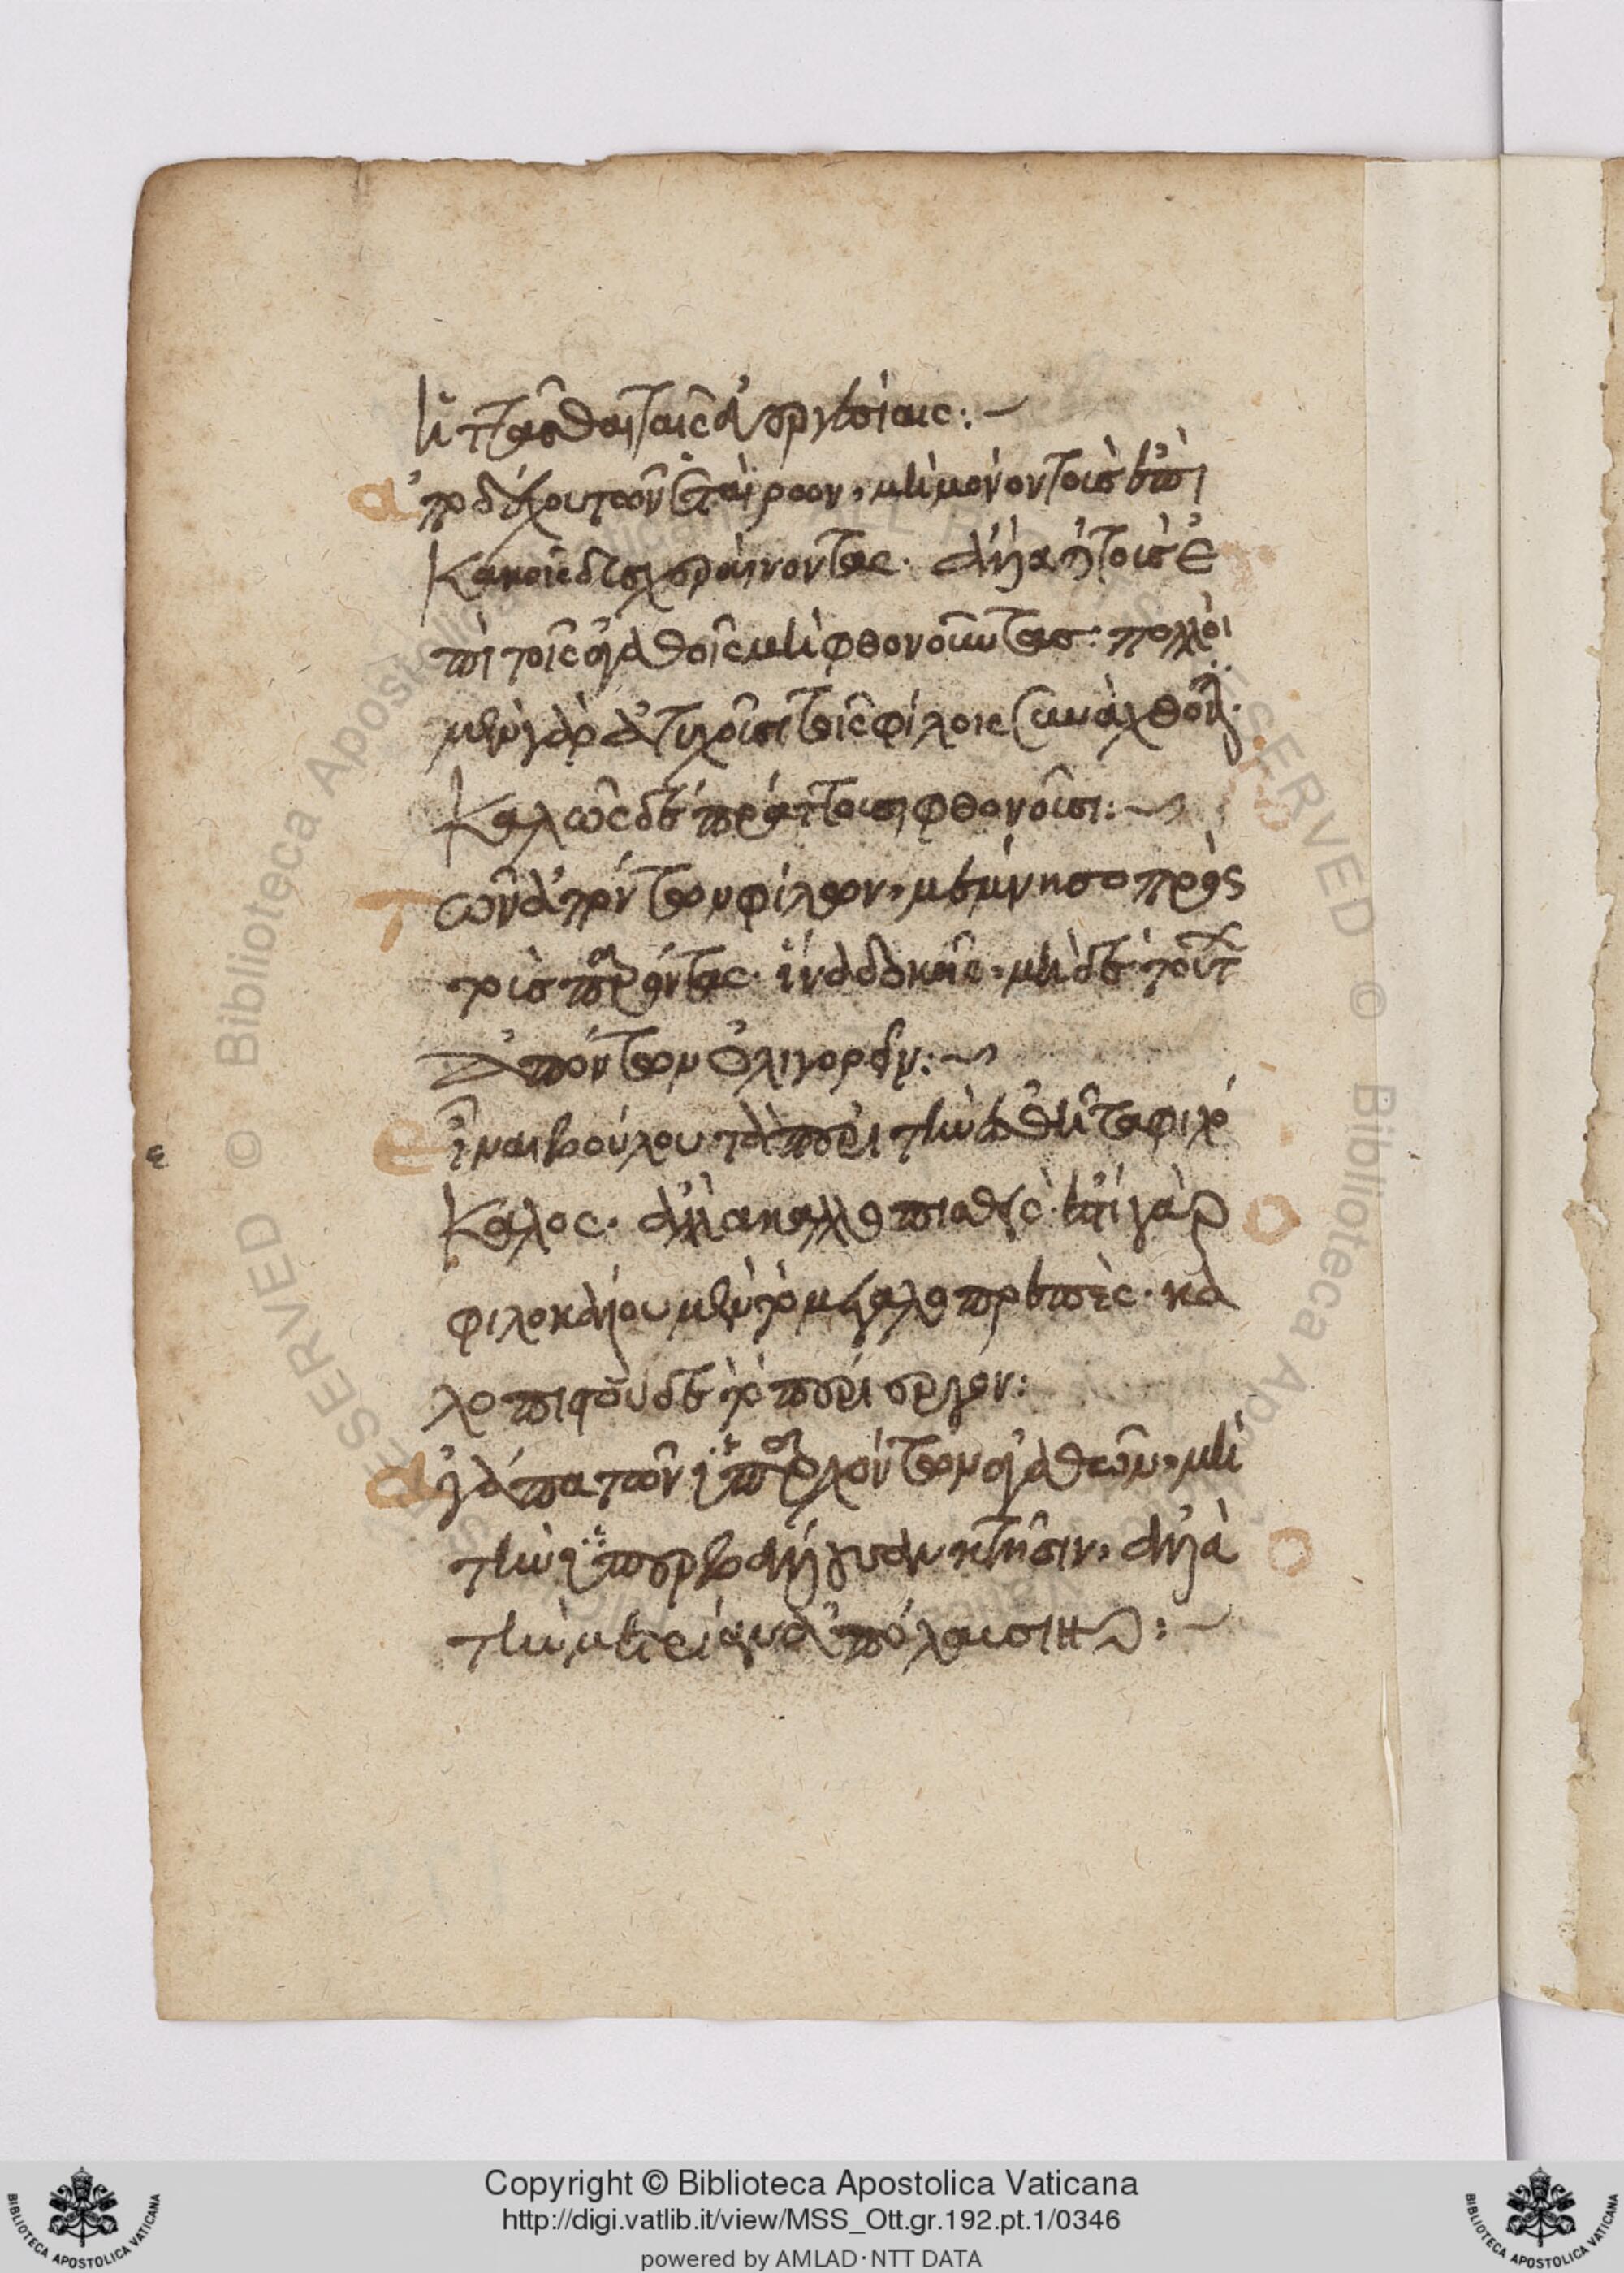 ἡττᾶσθαι ταῖς εὐεργεσίαις:~
ἀποδέχου τῶν ἑταίρων, μὴ μόνον τοὺς ἐπὶ
κακοῖς δυσχεραίνοντας· ἀλλὰ καὶ τοὺς ἐ
πὶ τοῖς ἀγαθοῖς μὴ φθονοῦντας· πολλοὶ
μὲν γὰρ ἀτυχοῦσι τοῖς φίλοις συνάχθονται·
καλῶς δὲ πράττουσι φθονοῦσι:~
τῶν ἀπόντων φίλων, μέμνησο πρὸς
τοὺς παρόντας· ἵνα δοκῇς, μὴ δὲ τούτων
ἀπόντων ὀλιγορεῖν:~
εἶναι βούλου τὰ περὶ τὴν ἐσθῆτα φιλό
καλος· ἀλλὰ μὴ καλλωπιστής· ἔστι γὰρ
φιλοκάλου μὲν τὸ μεγαλοπρεπὲς· κα
λοπιστοῦ δὲ τὸ περίεργον:
ἀγάπα τῶν ὑπαρχόντων ἀγαθῶν, μὴ
τὴν ὑπερβάλλουσαν κτῆσιν, ἀλλὰ
τὴν μετρίαν ἀπόλαυσιν:~
ε
Copyright © Biblioteca Apostolica Vaticana
http://digi.vatlib.it/view/MSS_Ott.gr.192.pt.1/0346
powered by AMLAD·NTT DATA
BIBLIOTECA APOSTOLICA VATICANA
BIBLIOTECA APOSTOLICA VATICANA